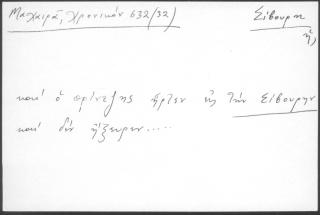 Μαχαιρᾶ, Χρονικόν 632/32)
Σίβουρη
ἡ,
καὶ ὁ πρίντζης ἦρτεν εἰς τὴν Σίβουρην
καὶ δὲν ἤξευρεν.....